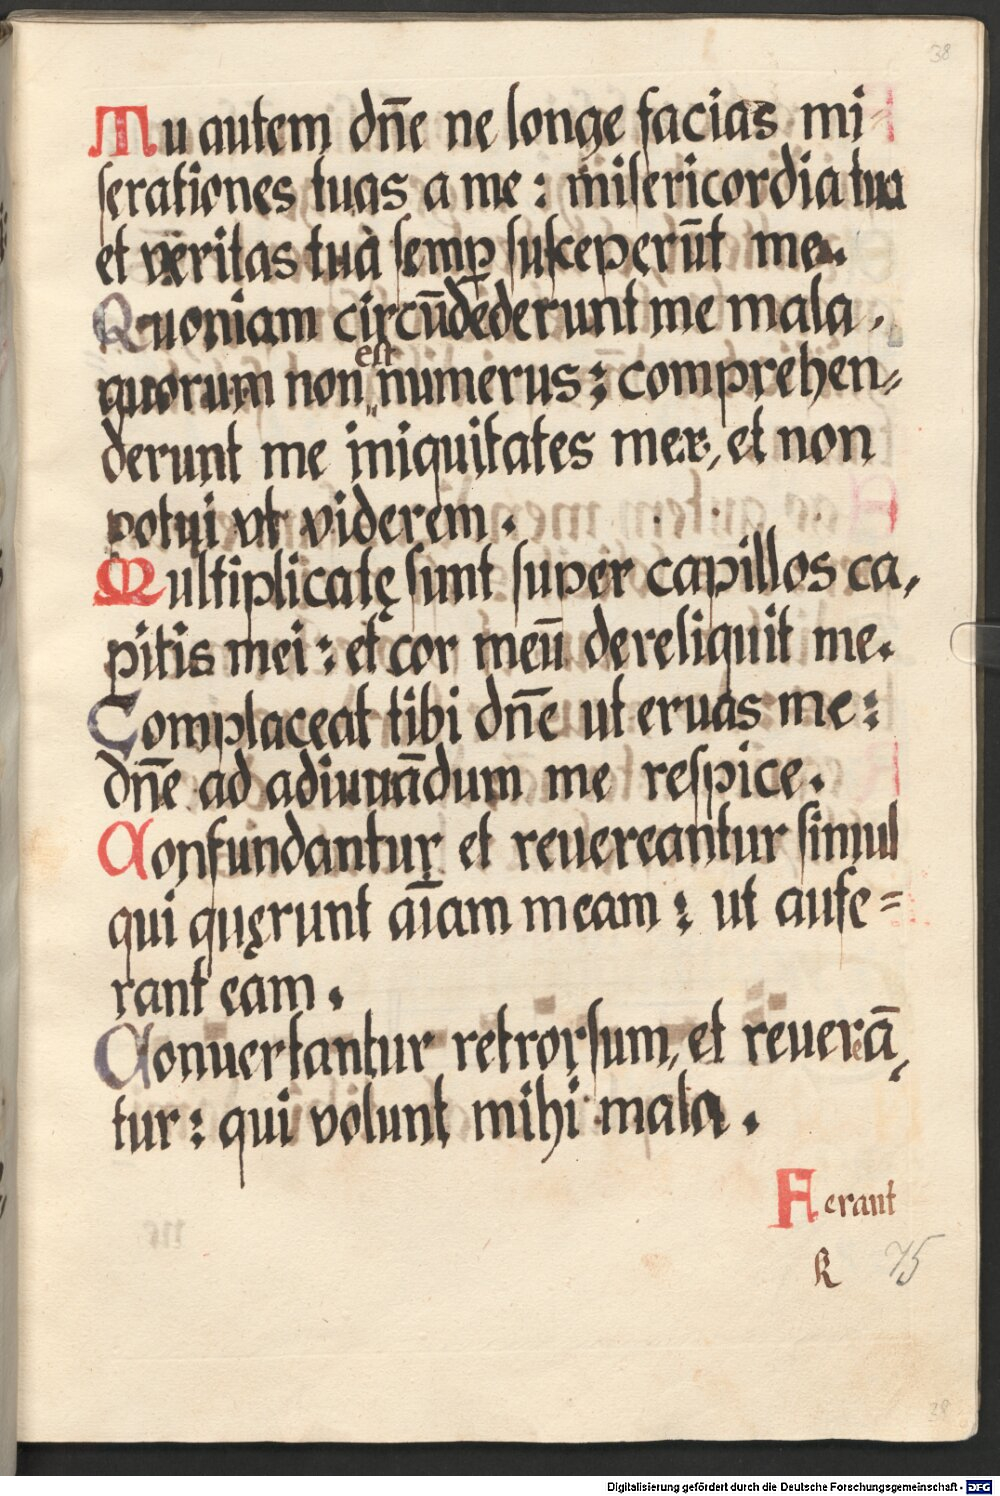 38
Tu autem dn̄e ne longe facias mi
serationes tuas a me : misericordia tua
et veritas tua semp̱ susceperūt me.
Quoniam circūdederunt me mala,
quorum non est numerus : comprehen⸗
derunt me iniquitates meę, et non
potui vt viderem.
Multiplicatę sunt super capillos ca,
pitis mei : et cor meū dereliquit me.
Complaceat tibi dn̄e ut eruas me :
dn̄e ad adiuuādum me respice.
Confundantur et reuereantur simul
qui quęrunt aīam meam : ut aufe⸗
rant eam.
Conuertantur retrorsum, et reuereā,
tur : qui volunt mihi mala.
Ferant
R 75
38
Digitalisierung gefördert durch die Deutsche Forschungsgemeinschaft - DFG